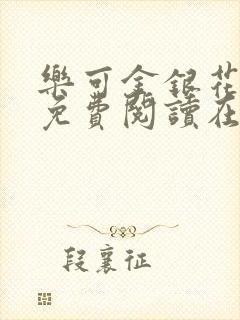 樂可金銀花
免費閱讀在
段襄征